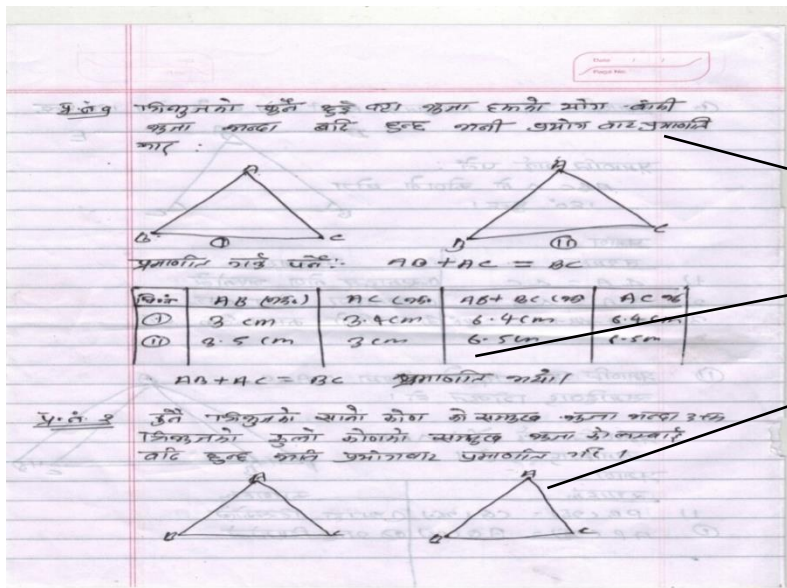 Date / /
Page No.
प्र.नं.१ त्रिभुजको कुनै दुई वटा भुजा हरूको योग बाँकी
भुजा भन्दा बढि हुन्छ भनी प्रयोग वाट प्रमाणित
गर :
A A
B I C B II C
प्रमाणित गर्नु पर्ने:- AB + AC = BC
चि.नं. AB AC AB + BC AC
I 3 cm 3.4cm 6.4cm 6.4cm
II 3.5 cm 3cm 6.5cm 6.5cm
AB + AC = BC प्रमाणित भयो।
कुनै त्रिभुजको सानो कोण को सम्मुख भुजा भन्दा
त्रिभुजको ठुलो कोणको सम्मुख भुजा को लम्बाई
बढि हुन्छ भनि प्रयोगवाट प्रमाणित गर ।
A A
B C B C